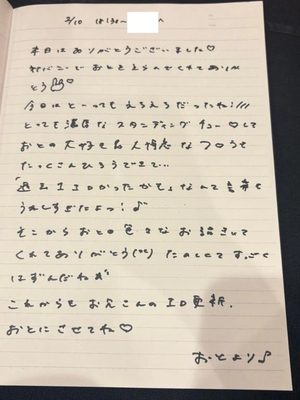 2/10 18:30〜
本日はありがとうございました♡
おとをえらんでくれてあり
とう
今日はとーってもえろえろだったね!///
とっても濃厚なスタンディングチュー♡して
おとの大好き&人情態なフ○ラも
たっくさんひろうできて…
「過去1エロかったかも」なんて言葉も
うれしすぎたよっ!♪
そこからおとの色々なお話きいて
くれてありがとう たのしくてすっごく
はずんだね
これからもお兄さんのエロ更新、
おとにさせてね♡
おとより♪